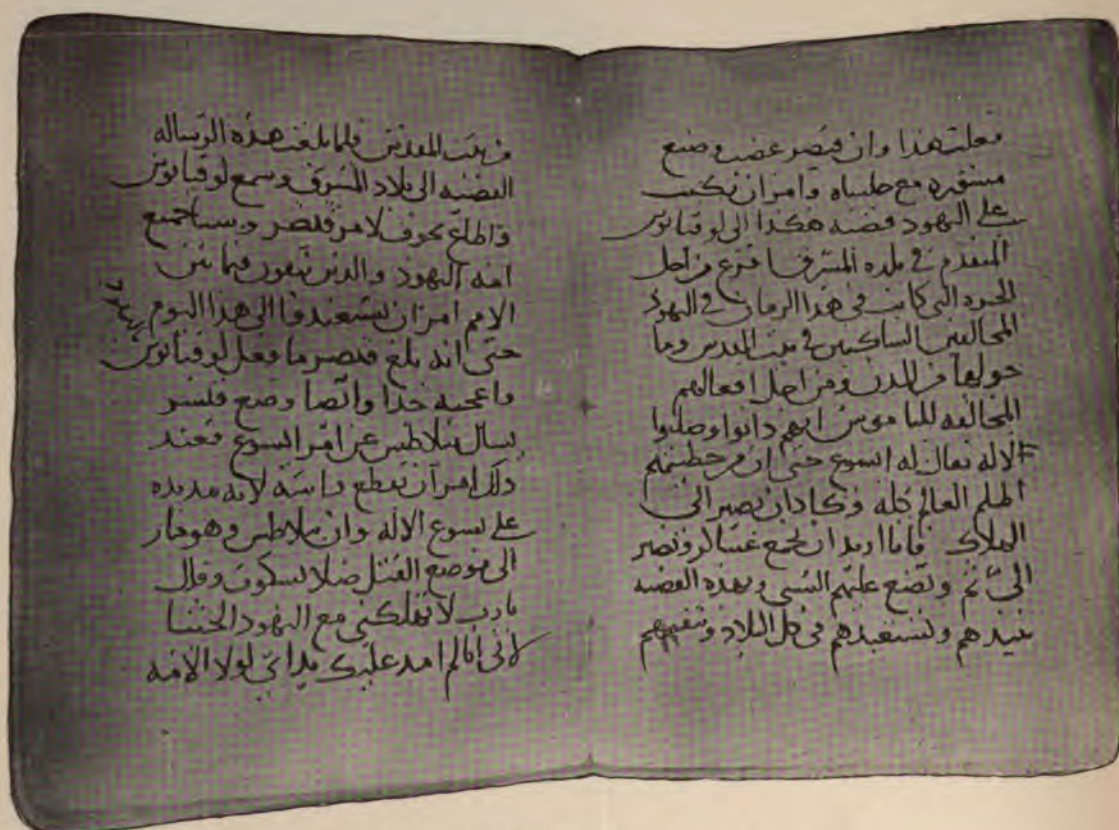 فعلت هذا وان قيصر غضب وصنع
مشوره مع جلساه وامر ان يكتب
على اليهود قضيه هكذا الى لوقيانوس
المتقدم في بلده المشرق من اجل
التى كانت فى هذا الزمان فى اليهود
المخالفين الساكنين في بيت المقدس وما
حولها من المدن ومن اجل افعالهم
المخالفه للناموس انهم دانوا وصلبوا
الاله يقال له ايسوع حتى ان من خطيتهم
اظلم العالم كله وكاد ان يصير الى
الهلاك فانا اريد ان تجمع عساكر وتصير
الى ثم وتضع عليهم السبى وبهذه القضيه
تبيدهم وتستعبدهم فى كل البلاد وتنفيهم
من بيت المقدس فلما بلغت هذه الرساله
القضيه الى بلاد المشرق وسمع لوقيانوس
فاطاع بخوف لامر قيصر وسبا جميع
امه اليهود والذين تبقون فيما بين
الامم امر ان يستعبدوا الى هذا اليوم
حتى انه بلغ قيصر ما فعل لوقيانوس
فاعجبه جدا وايضا وضع قيصر
يسال بيلاطس عن امر ايسوع فعند
ذلك امر ان تقطع راسه لانه مد يده
على يسوع الاله وان بيلاطس وهو مار
الى موضع القتل صلا بسكون وقال
يارب لا تهلكني مع اليهود الخبثا
لانى انا لم امد عليك يداي لولا الامه